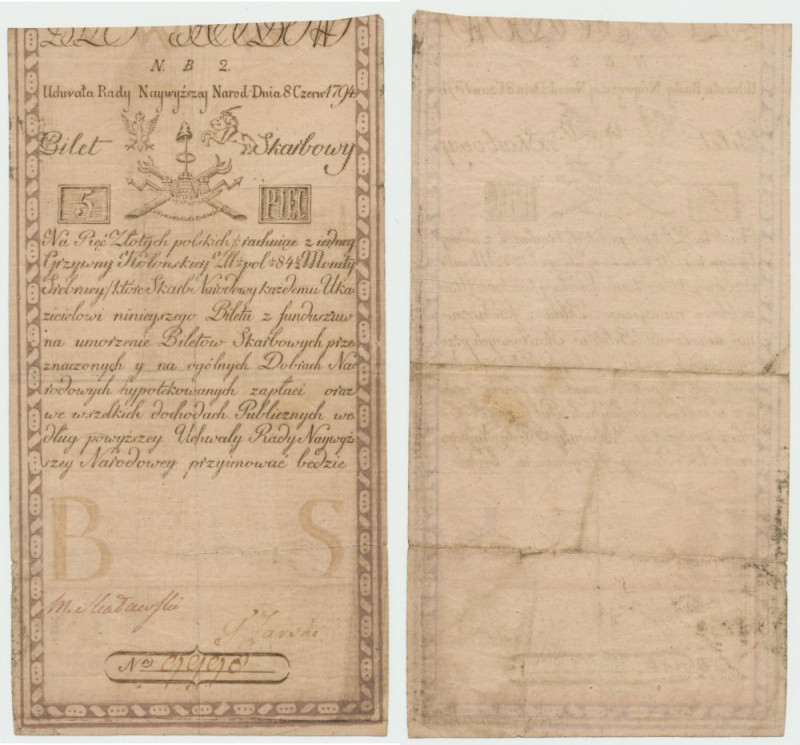 N. B 2.
Uchwała Rady Naywyższey Narod: Dnia 8 Czerw: 1794
Bilet Skarbowy
5 PIĘĆ
Na Pięć Złotych polskich, rachuiąc z iedney
Grzywny Kolońskiey Złł: pol: 84½ Monety
Srebrney, które Skarb Narodowy każdemu Uka
zicielowi ninieyszego Biletu z funduszuw
na umorzenie Biletów Skarbowych prze
znaczonych y na ogólnych Dobrach Na
rodowych hypotekowanych zapłaci oraz
we wszelkich dochodach Publicznych we
dług powyższey Uchwały Rady Naywyż
szey Narodowey przyimować będzie
B S
No 9998